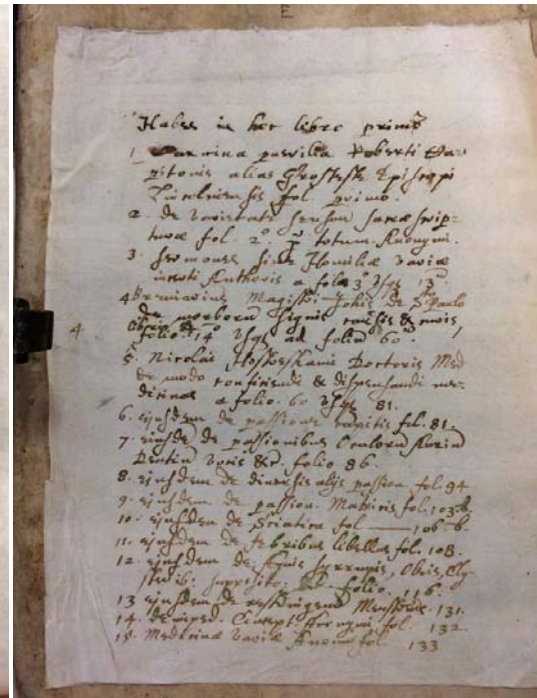 Habes in hoc libro primo
1 Carmina puerilia Roberti
pitonis alias Grostest Episcopi
Lincolniensis fol primo.
2. de varietate sensum sacræ scrip-
turæ fol. 2º totum Anonymi.
3. Sermones sive Homiliæ variæ
incerti Authoris a folº 3º usqe 13
4 Breviarium Magistri Johis de S. Paulo
de morborū signis causis & curis
folio. 14º usqe ad foliū 60
4
5. Nicolai Doctoris Med
de modo conficiendi & dispensandi me-
dicinas a folio. 60 usqe 81.
6. ejusdem de passione capitis fol. 81.
7. ejusdē de passionibus Oculorū Auriū
Dentiū &c. folio 86.
8. ejusdem de diversis alijs passion. fol. 94
9. ejusdem de passion. Matricis fol. 103. b.
10. ejusdem de Sciatica fol — 106. b.
11. ejusdem de febribus libellus fol. 108.
12. ejusdem de Cly-
sterib. supposito: folio. 116.
13 ejusdem de Menstruis. 131.
14. de fol. 132
15. Medicinæ variæ Anonimo fol. 133